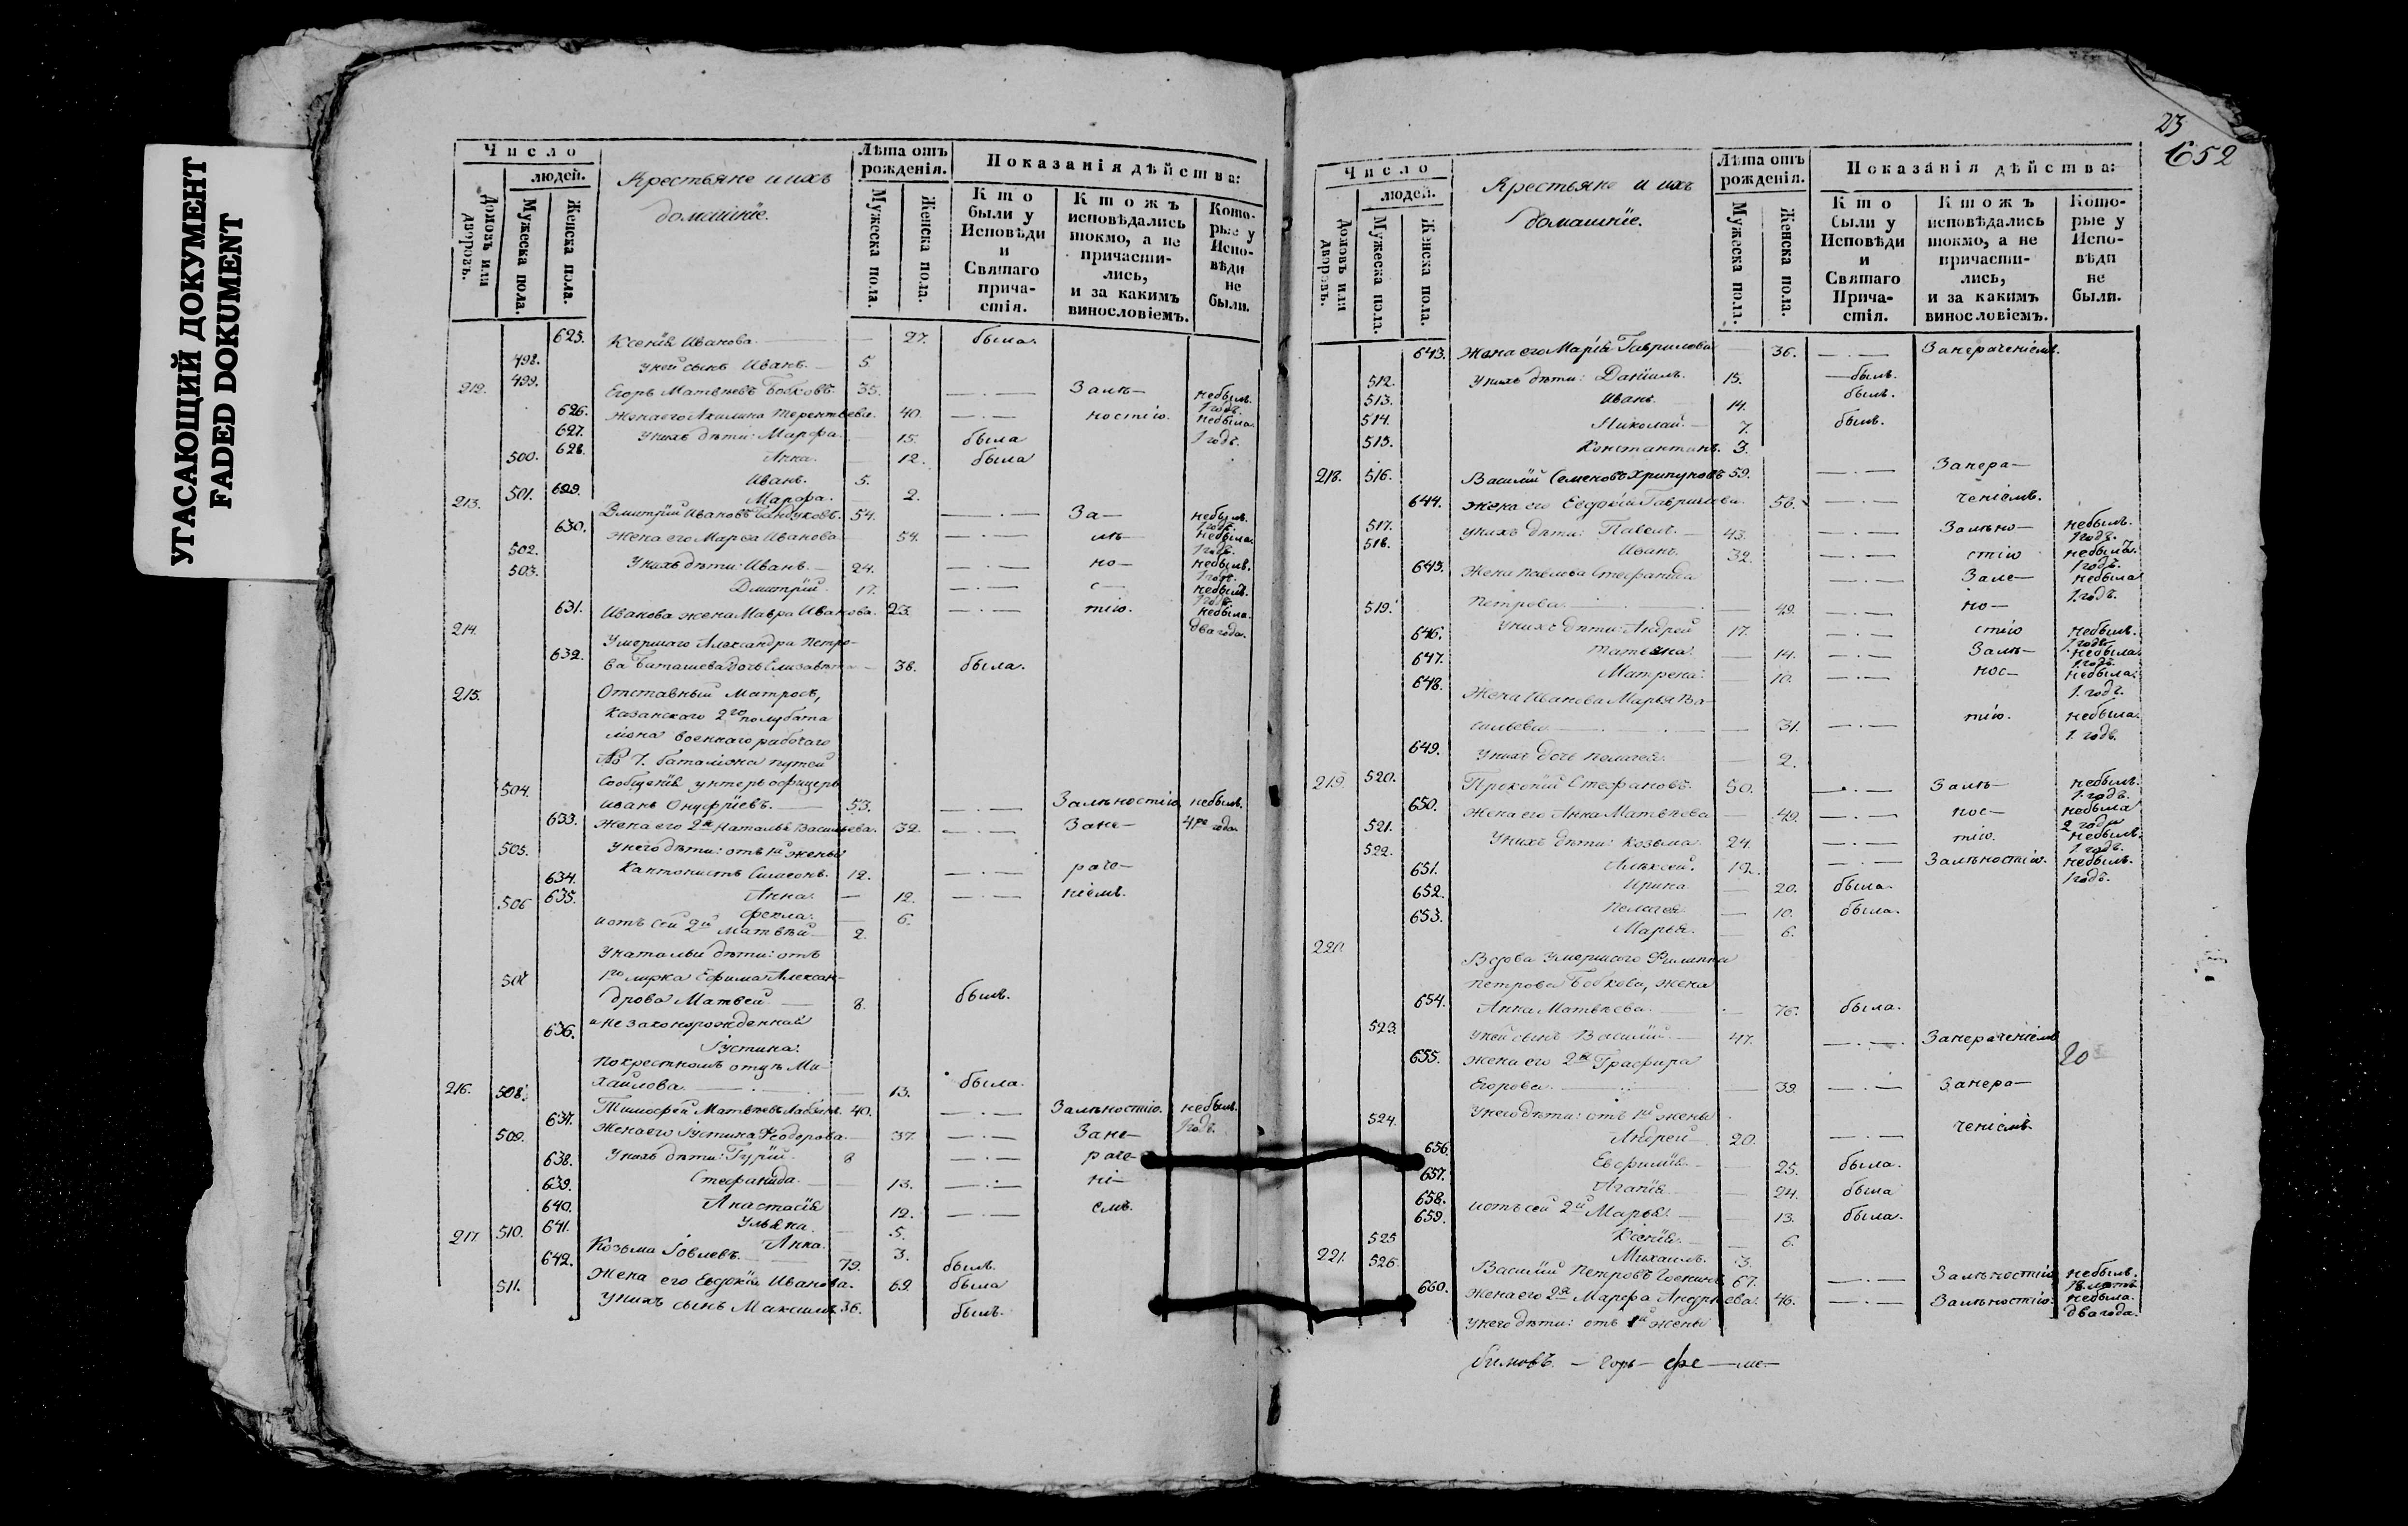 УГАСАЮЩИЙ ДОКУМЕНТ
FADED DOKUMENT
Число
людей.
Домовъ или дворовъ.
Мужеска пола.
Женска пола.
Крестьяне и ихъ
домашніе.
Лѣта отъ рожденія.
Мужеска пола.
Женска пола.
Показанія дѣйства:
Кто были у Исповѣди и Святаго причастія.
Ктожъ исповѣдались токмо, а не причастились, и за какимъ винословіемъ.
Которые у Исповѣди не были.
625. Ксенія Иванова. — 27. была.
498. У ней сынъ Иванъ. — 5.
212. 499. Егоръ Матвѣевъ Бобковъ. 35. — . — Залѣ- небылъ. 1 годъ.
626. Жена его Акилина Терентьева. 40. — . — ностію. небыла. 1 годъ.
627. У нихъ дѣти: Марфа. — 15. была
628. Анна. — 12. была
500. Иванъ. 5.
629. Марфа. — 2.
213. 501. Дмитрій Ивановъ 54. — . — За- небылъ. 1 годъ.
630. Жена его Марѳа Иванова. 54. — . — лѣ- небыла. 1 годъ.
502. У нихъ дѣти: Иванъ. — 24. — . — но- небылъ. 1 годъ.
503. Дмитрій. 17. — . — с- небылъ. 1 годъ.
631. Иванова жена Мавра Иванова. 23. — . — тію. небыла. два года.
214. Умершаго Александра Петро-
632. ва Баташева дочь Елизавета — 38. была.
215. Отставный матросъ,
Казанского 2го полубата
ліона военнаго рабочаго
№ 7. баталіона путей
504. сообщенія унтеръ офицеръ
Иванъ Онуфріевъ. — 53. — . — Залѣностію. небылъ.
633. Жена его 2я Наталья Васильева. 32. — . — Зане- 4ре года.
505. У него дѣти: отъ 1й жены
Кантонистъ Симеонъ. 12. — . — раче-
634. Анна. — 12. — . — ніемъ.
635. Фекла. — 6.
506 и отъ сей 2й Матвѣй 2.
У натальи дѣти: отъ
507 1го мужа Ефима Алексан-
дрова Матвей. — 8. былъ.
636. и незаконорожденная
Іустина:
по крестномъ отцѣ Ми-
хайлова. — 13. была.
216. 508. Тимофей Матвѣевъ 40. — . — Залѣностію. небылъ. 1 годъ.
637. Жена его Іустина Ѳеодорова. — 37. — . — Зане-
509. У нихъ дѣти: Гурій. 8 — . — раче-
638. Стефанида. — 13. — . — ні-
639. Анастасія 12. — . — емъ.
640. Ульяна. — 5.
641. Анна. — 3.
217 510. Козьма Іовлевъ. — 79. былъ.
642. Жена его Евдокія Иванова. 69. была
511. У нихъ сынъ Максимъ. 36. былъ.
23
652
Число
людей.
Домовъ или дворовъ.
Мужеска пола.
Женска пола.
Крестьяне и ихъ
домашніе.
Лѣта отъ рожденія.
Мужеска пола.
Женска пола.
Показанія дѣйства:
Кто были у Исповѣди и Святаго Причастія.
Ктожъ исповѣдались токмо, а не причастились, и за какимъ винословіемъ.
Которые у Исповѣди не были.
643. Жена его Марія Гаврилова — 36. — . — Занераченіемъ.
512. У нихъ дѣти: Даніилъ. 15. — былъ.
513. Иванъ. 14. былъ.
514. Николай. — 7. былъ.
515. Константинъ. 3.
218. 516. Василій Семеновъ Хрипуновъ 59. — . — Занера-
644. Жена его Евдокія Гаврилова. 56. — . — ченіемъ.
517. У нихъ дѣти: Павелъ. — 43. — . — Залѣно- небылъ. 1 годъ.
518. Иванъ. 32. — . — стію небылъ. 1 годъ.
645. Жена павлова Стефанида
Петрова. — 49. — . — Зале- небыла 1. годъ.
519. У нихъ дѣти: Андрей 17. — . — но- небылъ. 1 годъ.
646. Татьяна. — 14. — . — стію небыла. 1 годъ.
647. Матрена. — 10. — . — Залѣ- нос- небыла. 1. годъ.
648. Жена Иванова Марья Ва-
сильева. — 31. — . — тію. небыла. 1. годъ.
649. У нихъ дочь Пелагея. — 2.
219. 520. Прокопій Стефановъ. 50. — . — Залѣ- небылъ. 1. годъ.
650. Жена его Анна Матвѣева — 49. — . — нос- небыла 2 года
521. У нихъ дѣти: Козьма. 24. — . — тію. небылъ. 1 годъ.
522. Алексей. 12. — . — Залѣностію. небылъ. 1 годъ.
651. Ирина — 20. была.
652. Пелагея — 10. была.
653. Марья. — 6.
220. Вдова умершаго Филиппа
Петрова Бобкова, жена
654. Анна Матвѣева. — 76. была.
523. У ней сынъ Василій. — 47. — . — Занераченіемъ
655. Жена его 2я Графира
Егорова. — 39. — . — Занера-
20
524. У него дѣти: отъ 1й жены
Андрей 20. — . — ченіемъ.
656. Евфимія. — 25. была.
657. Агапія — 24. была
658. и отъ сей 2й Марья. — 13. была.
659. Ксенія. — 6.
525 Михаилъ. 3.
221. 526. Василій Петровъ 67. — . — Залѣностію небылъ.
660. Жена его 2я Марфа Андреева. 46. — . — Залѣностію. небыла. два года.
У него дѣти: отъ 1й жены